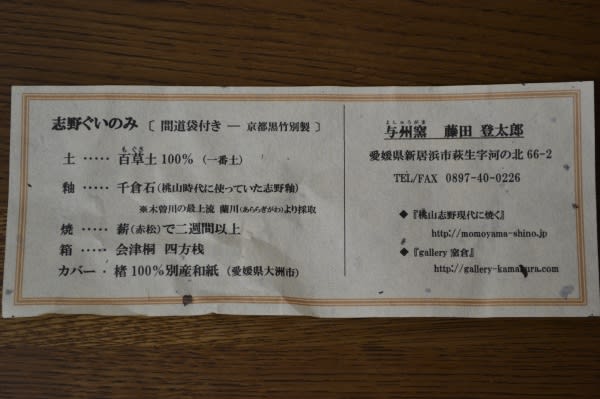 志野ぐいのみ 〔 間道袋付き ― 京都黒竹別製 〕
もぐさ
土 ‥‥‥ 百草土 100% （一番土）
釉 ‥‥‥ 千倉石（桃山時代に使っていた志野釉）
※木曽川の最上流 蘭川（あららぎがわ）より採取
焼 ‥‥‥ 薪（赤松）で二週間以上
箱 ‥‥‥ 会津桐 四方桟
カバー ・ 楮 100%別産和紙 （愛媛県大洲市）
よしゅうがま
与州窯 藤田 登太郎
愛媛県新居浜市萩生字河の北 66-2
TEL/FAX 0897-40-0226
◆『桃山志野現代に焼く』
http://momoyama-shino.jp
◆『gallery 窯倉』
http://gallery-kamakura.com